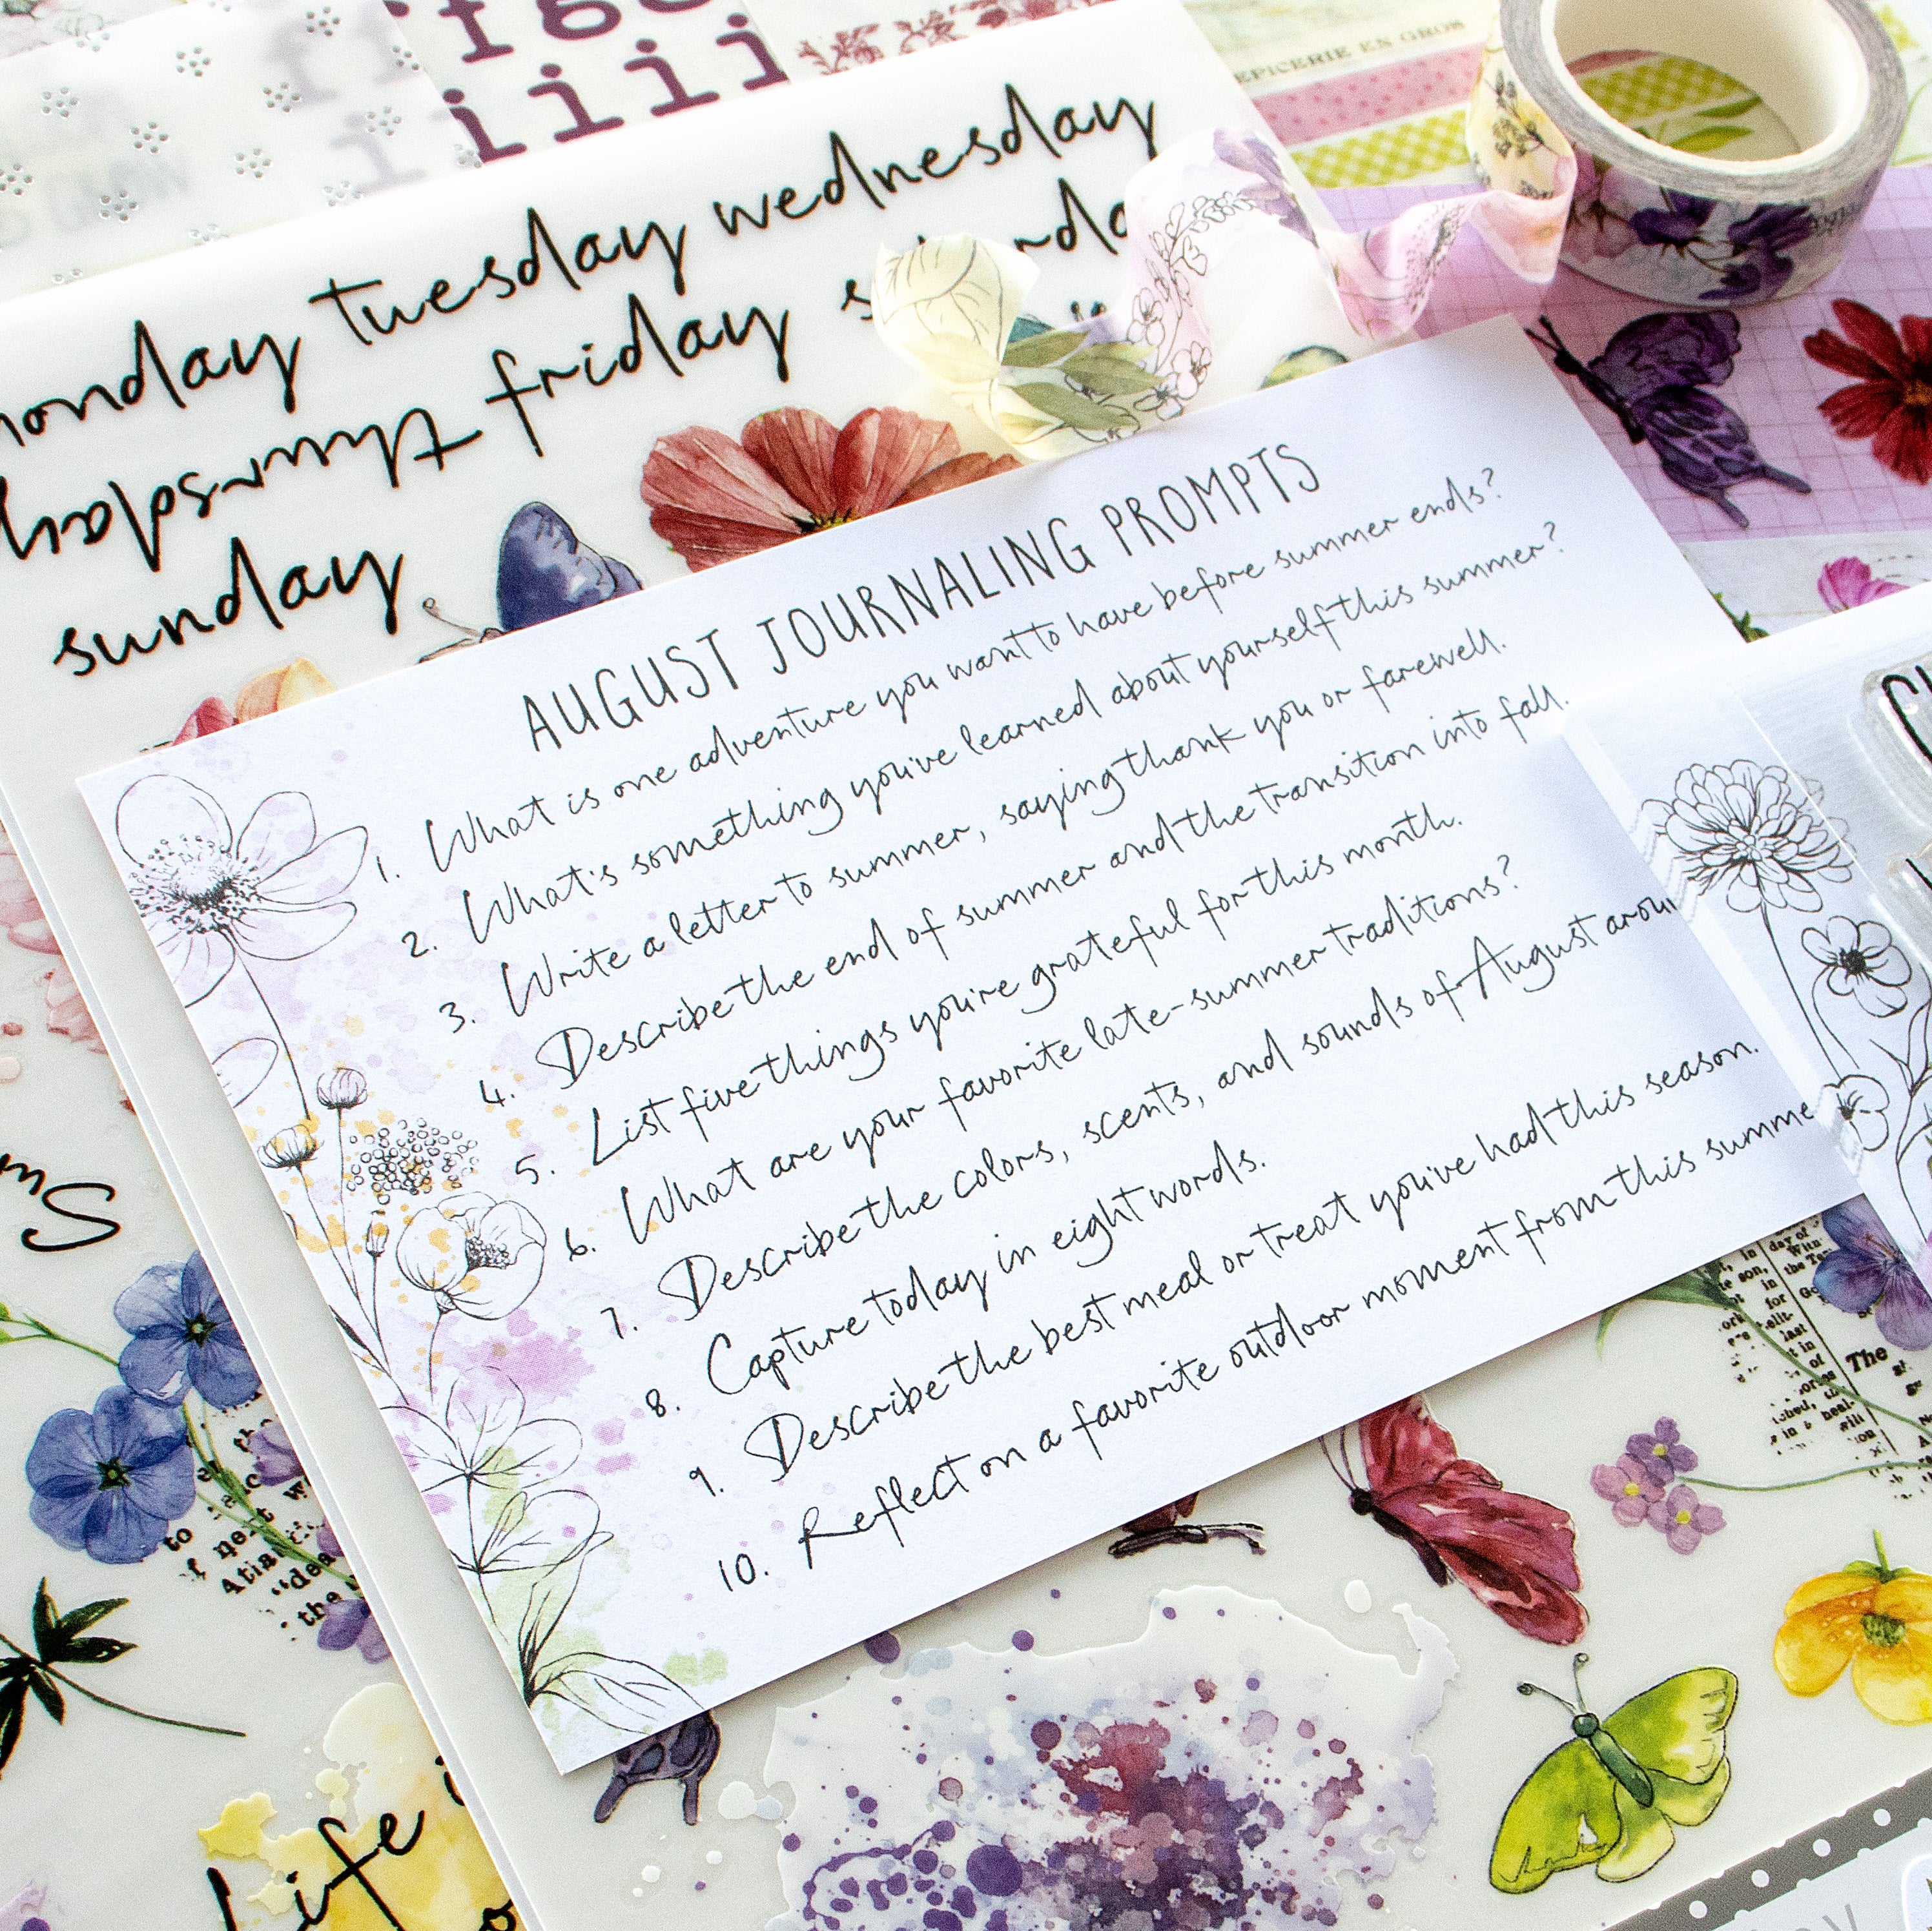 fg
iiii
i
EPICERIE EN GROS
monday tuesday wednesday
thursday friday
sunday
AUGUST JOURNALING PROMPTS
1. What is one adventure you want to have before summer ends?
2. What's something you've learned about yourself this summer?
3. Write a letter to summer, saying thank you or farewell.
4. Describe the end of summer and the transition into fall.
5. List five things you're grateful for this month.
6. What are your favorite late-summer traditions?
7. Describe the colors, scents, and sounds of August arou
8. Capture today in eight words.
9. Describe the best meal or treat you've had this season.
10. Reflect on a favorite outdoor moment from this summe
Su
day of
The
in
for
last
of
will
to
Atla
"dea
the
Life i